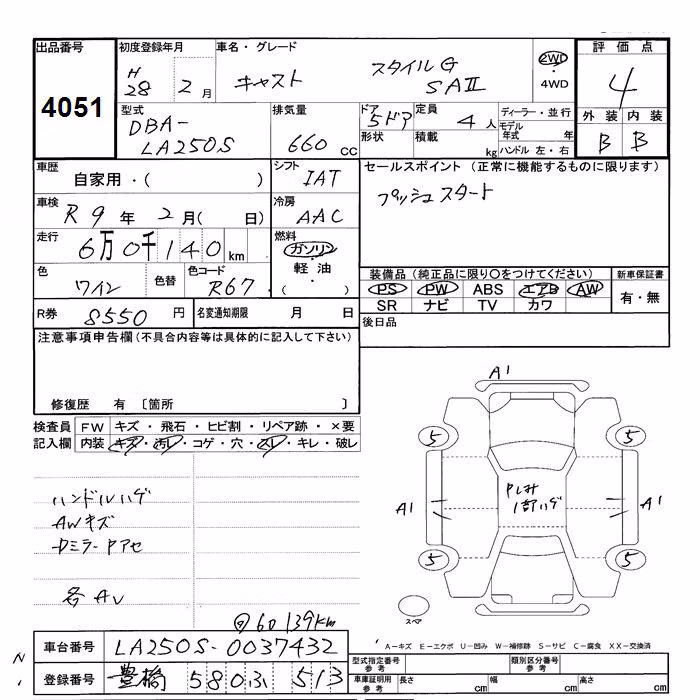 出品番号 4051
初度登録年月 H28 2月
車名・グレード キャスト スタイルG SAⅡ
2WD・4WD
評価点 4
外装 B 内装 B
型式 DBA-LA250S
排気量 660 cc
ドア 5ドア
形状
定員 4人
積載 kg
ディーラー・並行
モデル年式 年
ハンドル 左・右
車歴 自家用・( )
シフト IAT
車検 R9年2月( 日)
冷房 AAC
走行 6万0千140km
燃料 ガソリン・軽油・( )
色 ワイン 色替
色コード R67
R券 8550円
名変通知期限 月 日
セールスポイント(正常に機能するものに限ります)
プッシュスタート
装備品(純正品に限り○をつけてください)
PS PW ABS エアB AW
SR ナビ TV カワ
新車保証書 有・無
後日品
注意事項申告欄(不具合内容等は具体的に記入して下さい)
修復歴 有〔箇所 〕
検査員記入欄
FW キズ・飛石・ヒビ割・リペア跡・×要
内装 キズ・汚レ・コゲ・穴・スレ・キレ・破レ
ハンドルハゲ
AWキズ
各AU
60139km
車台番号 LA250S-0037432
登録番号 豊橋 580 ふ 513
A1
5 5
A1 A1
1部ハゲ
5 5
スペア
A-キズ E-エクボ U-凹み W-補修跡 S-サビ C-腐食 XX-交換済
型式指定番号 参考
類別区分番号 参考
車庫証明用 参考 長さ cm 幅 cm 高さ cm